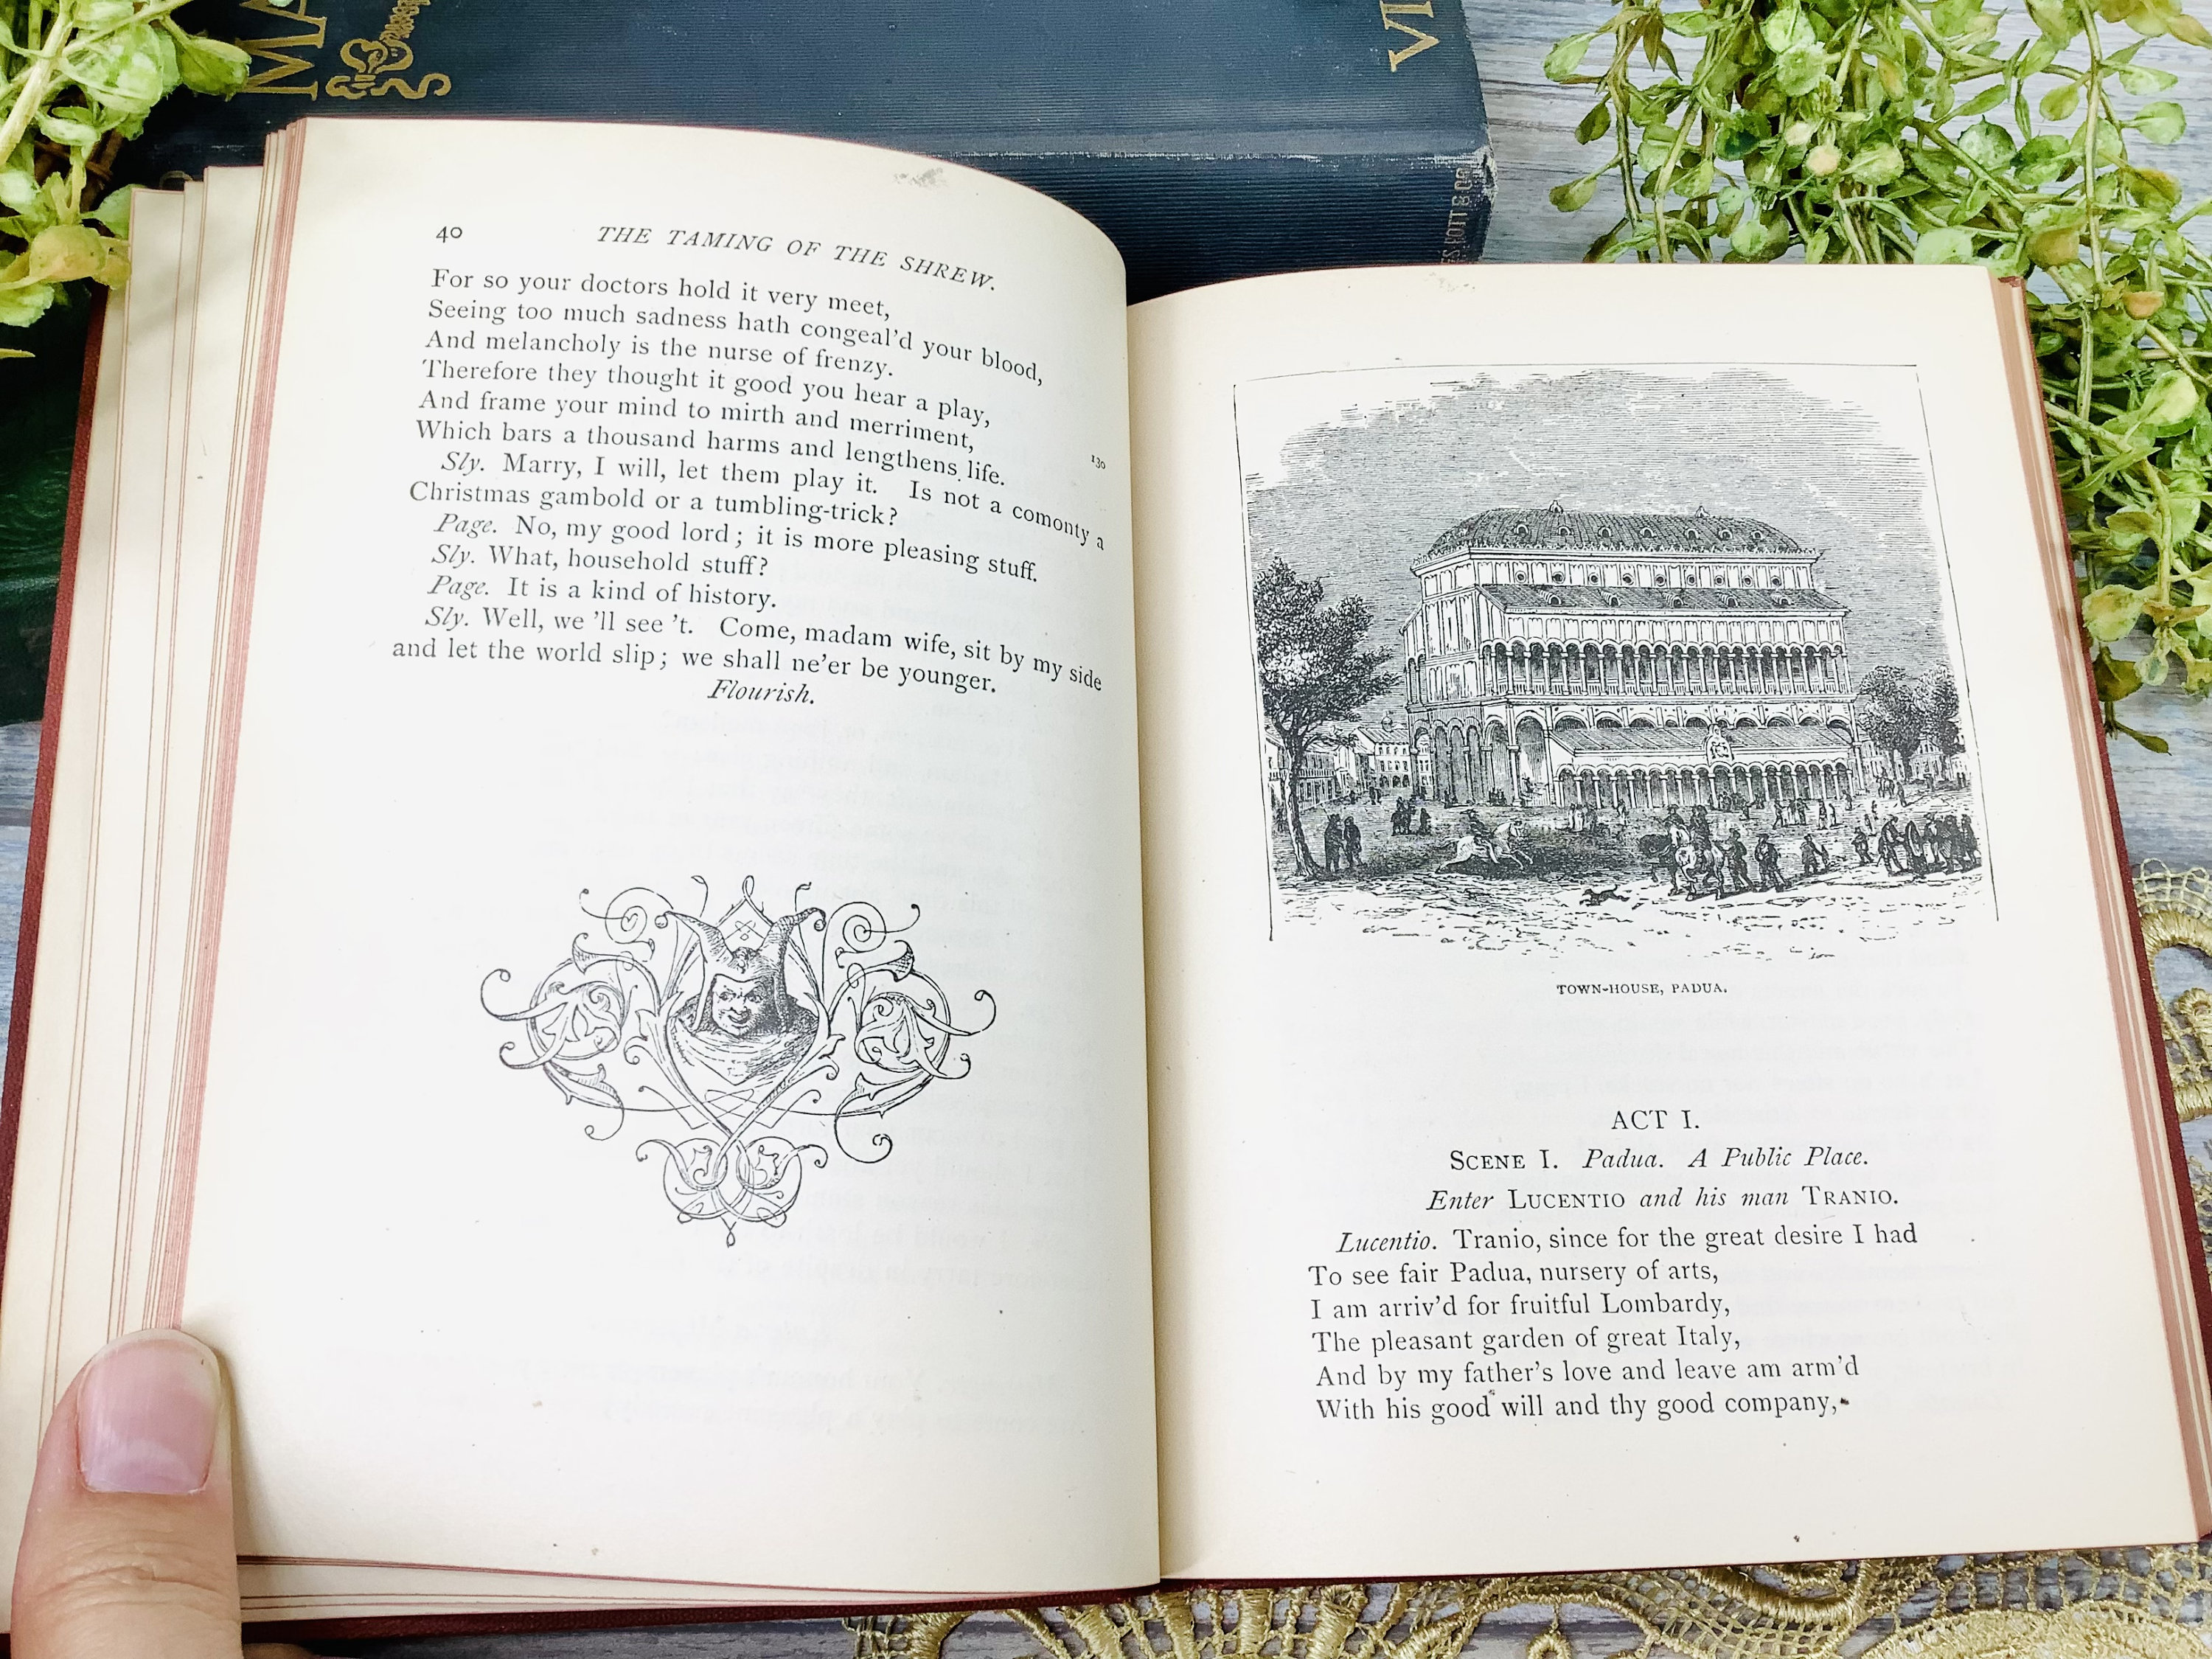 MA
VI
40 THE TAMING OF THE SHREW.
For so your doctors hold it very meet,
Seeing too much sadness hath congeal'd your blood,
And melancholy is the nurse of frenzy.
Therefore they thought it good you hear a play,
And frame your mind to mirth and merriment,
Which bars a thousand harms and lengthens life. 130
Sly. Marry, I will, let them play it. Is not a comonty a
Christmas gambold or a tumbling-trick?
Page. No, my good lord; it is more pleasing stuff.
Sly. What, household stuff?
Page. It is a kind of history.
Sly. Well, we 'll see 't. Come, madam wife, sit by my side
and let the world slip; we shall ne'er be younger.
Flourish.
TOWN-HOUSE, PADUA.
ACT I.
SCENE I. Padua. A Public Place.
Enter LUCENTIO and his man TRANIO.
Lucentio. Tranio, since for the great desire I had
To see fair Padua, nursery of arts,
I am arriv'd for fruitful Lombardy,
The pleasant garden of great Italy,
And by my father's love and leave am arm'd
With his good will and thy good company,